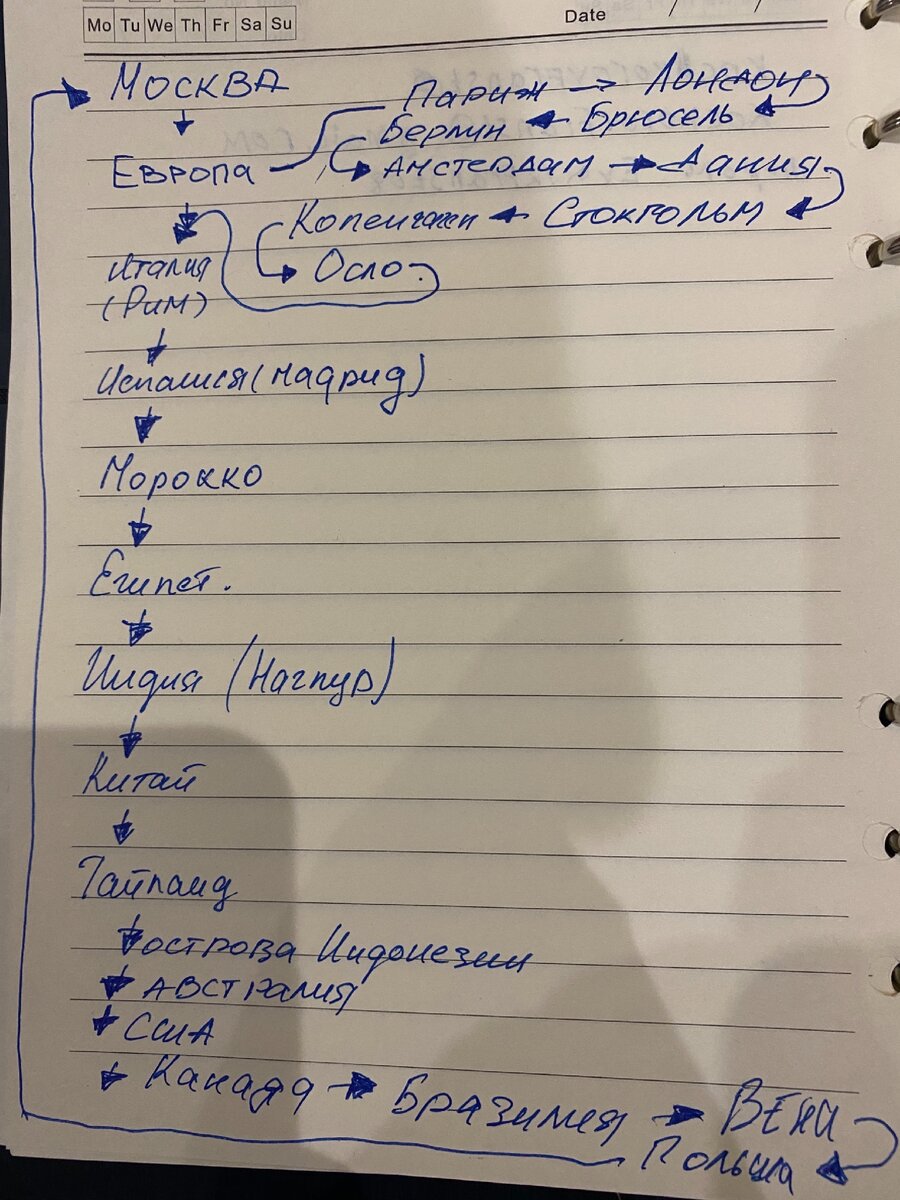 Mo Tu We Th Fr Sa Su
Date / /
Москва
Париж → Лондон
Берлин ← Брюсель
Европа
Амстердам → Дания
Копенгаген ← Стокгольм
Осло
Италия
(Рим)
Испания (Мадрид)
Морокко
Египет.
Индия (Нагпур)
Китай
Тайланд
острова Индонезии
Австралия
США
Канада → Бразилия →
Польша